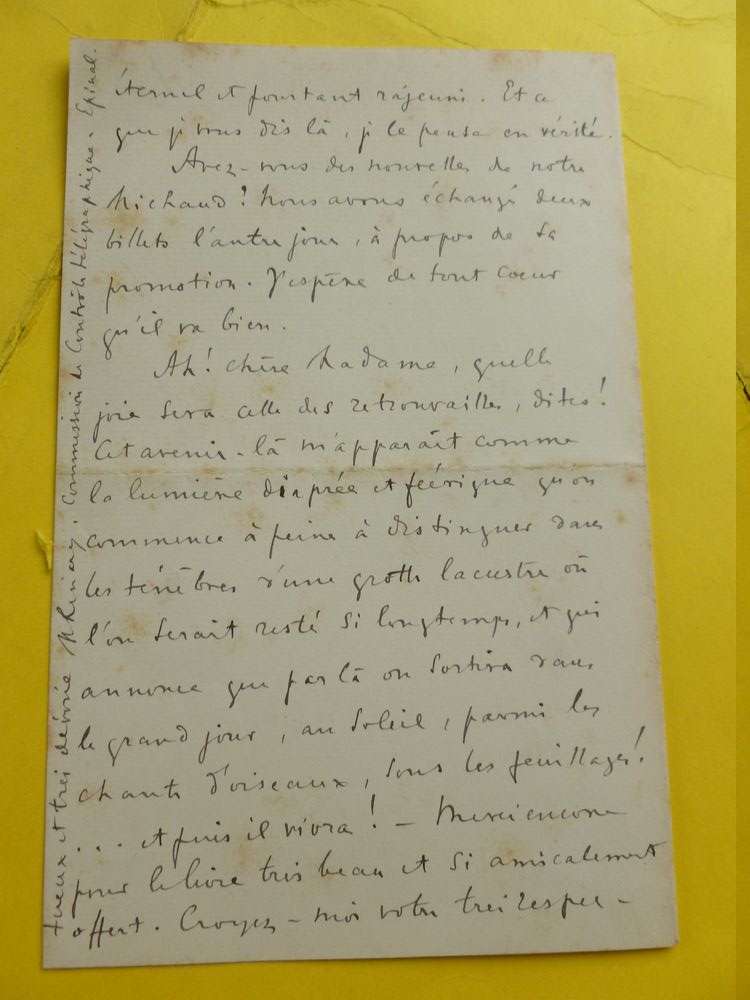 éternel et pourtant rajeuni. Et ce
que je vous dis là, je le pense en vérité.
Avez-vous des nouvelles de notre
Michaud? Nous avons échangé deux
billets l'autre jour, à propos de sa
promotion. J'espère de tout coeur
qu'il va bien.
Ah! chère Madame, quelle
joie sera celle des retrouvailles, dites!
Cet avenir-là m'apparaît comme
la lumière diaprée et féérique qu'on
commence à peine à distinguer dans
les ténèbres d'une grotte lacustre où
l'on serait resté si longtemps, et qui
annonce que par là on sortira dans
le grand jour, au soleil, parmi les
chants d'oiseaux, sous les feuillages!
... et puis il vivra! - Merci encore
pour le livre très beau et si amicalement
offert. Croyez-moi votre très respec-
tueux et très dévoué. Commission de Contrôle télégraphique - Epinal.